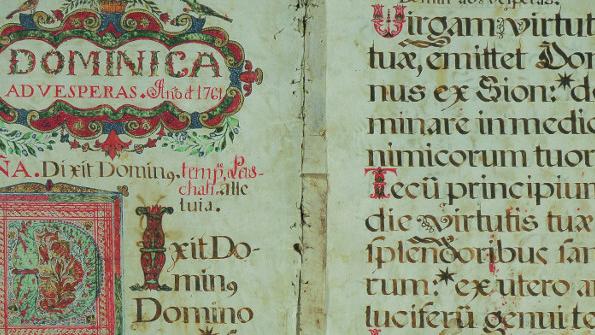 DOMINICA
AD VESPERAS. Año d 1761
ÑA. Dixit Domin9 temp. Pas-
chali. alle
luia.
Dixit Do-
min9
Domino
ad vesperas.
Virgam virtut
tuæ, emittet Dom
nus ex Sion:* do
minare in medio
nimicorum tuor
Tecũ principium
die virtutis tuæ
ſplendoribus ſan
rum:* ex utero an
luciferũ genui te